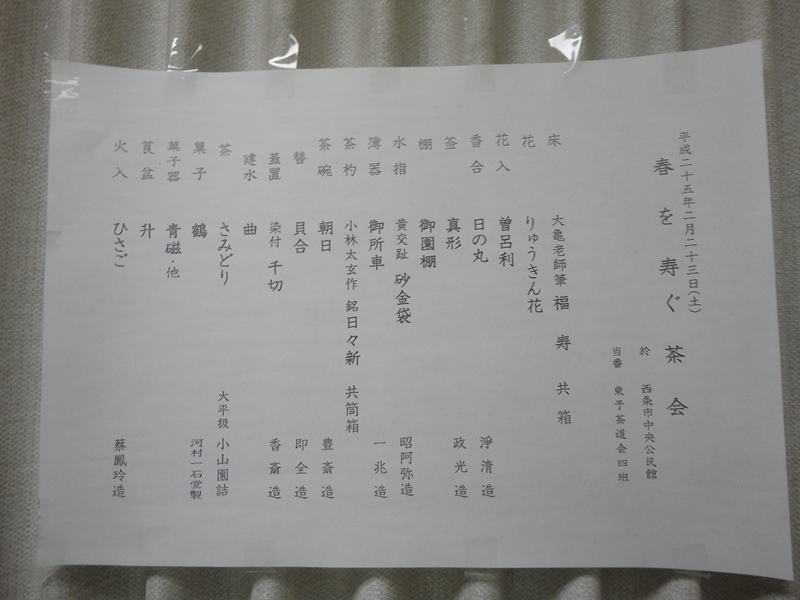 平成二十五年二月二十三日(土)
春を寿ぐ茶会
於 西条市中央公民館
当番 東予茶道会四班
床 大亀老師筆 福寿 共箱
花 りゅうきん花
花入 曽呂利 浄清造
香合 日の丸 政光造
釜 真形
棚 御園棚 昭阿弥造
水指 黄交趾 砂金袋
薄器 御所車 一兆造
茶杓 小林太玄作 銘 日々新 共筒箱
茶碗 朝日 豊斎造
替 貝合 即全造
蓋置 染付 千切 香斎造
建水 曲
茶 さみどり 大平扱 小山園詰
菓子 鶴 河村一石堂製
菓子器 青磁・他
莨盆 升
火入 ひさご 蔡鳳玲造